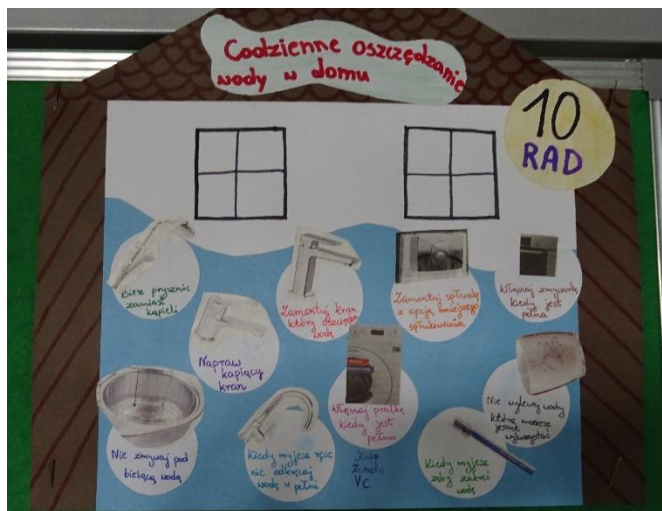 Codzienne oszczędzanie
wody w domu
10
RAD
Bierz prysznic
zamiast
kąpieli
Zamontuj kran
który oszczędza
wodę
Zamontuj spłuczkę
z opcją mniejszego
spłukiwania
Włączaj zmywarkę
kiedy jest
pełna
Napraw
kapiący
kran
Włączaj pralkę
kiedy jest
pełna
Nie wylewaj wody
którą możesz
jeszcze
wykorzystać
Nie zmywaj pod
bieżącą wodą
Kiedy myjesz ręce
nie odkręcaj
wody w pełni
Kiedy myjesz
zęby zakręć
wodę
Vc